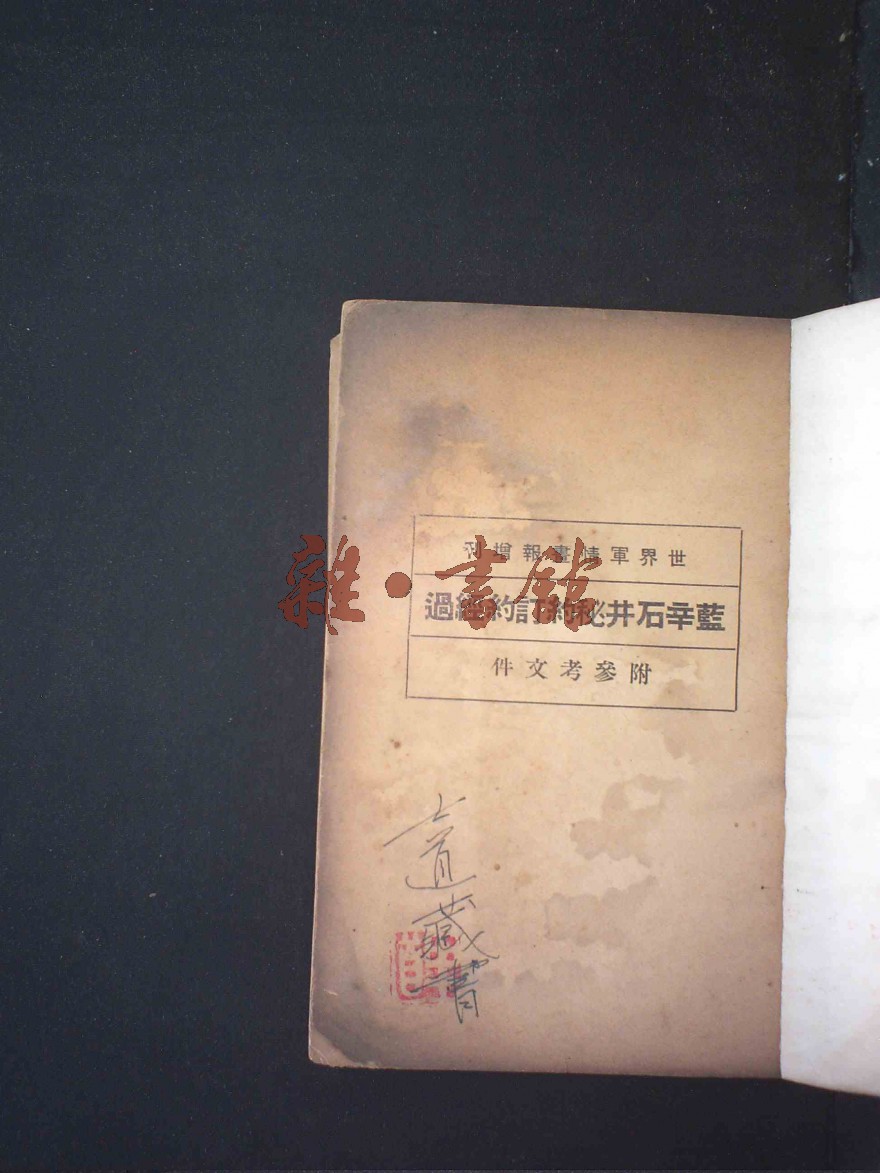 世界軍情畫報增刊
藍辛石井秘約訂約經過
附參考文件
雜·書館
道藏書